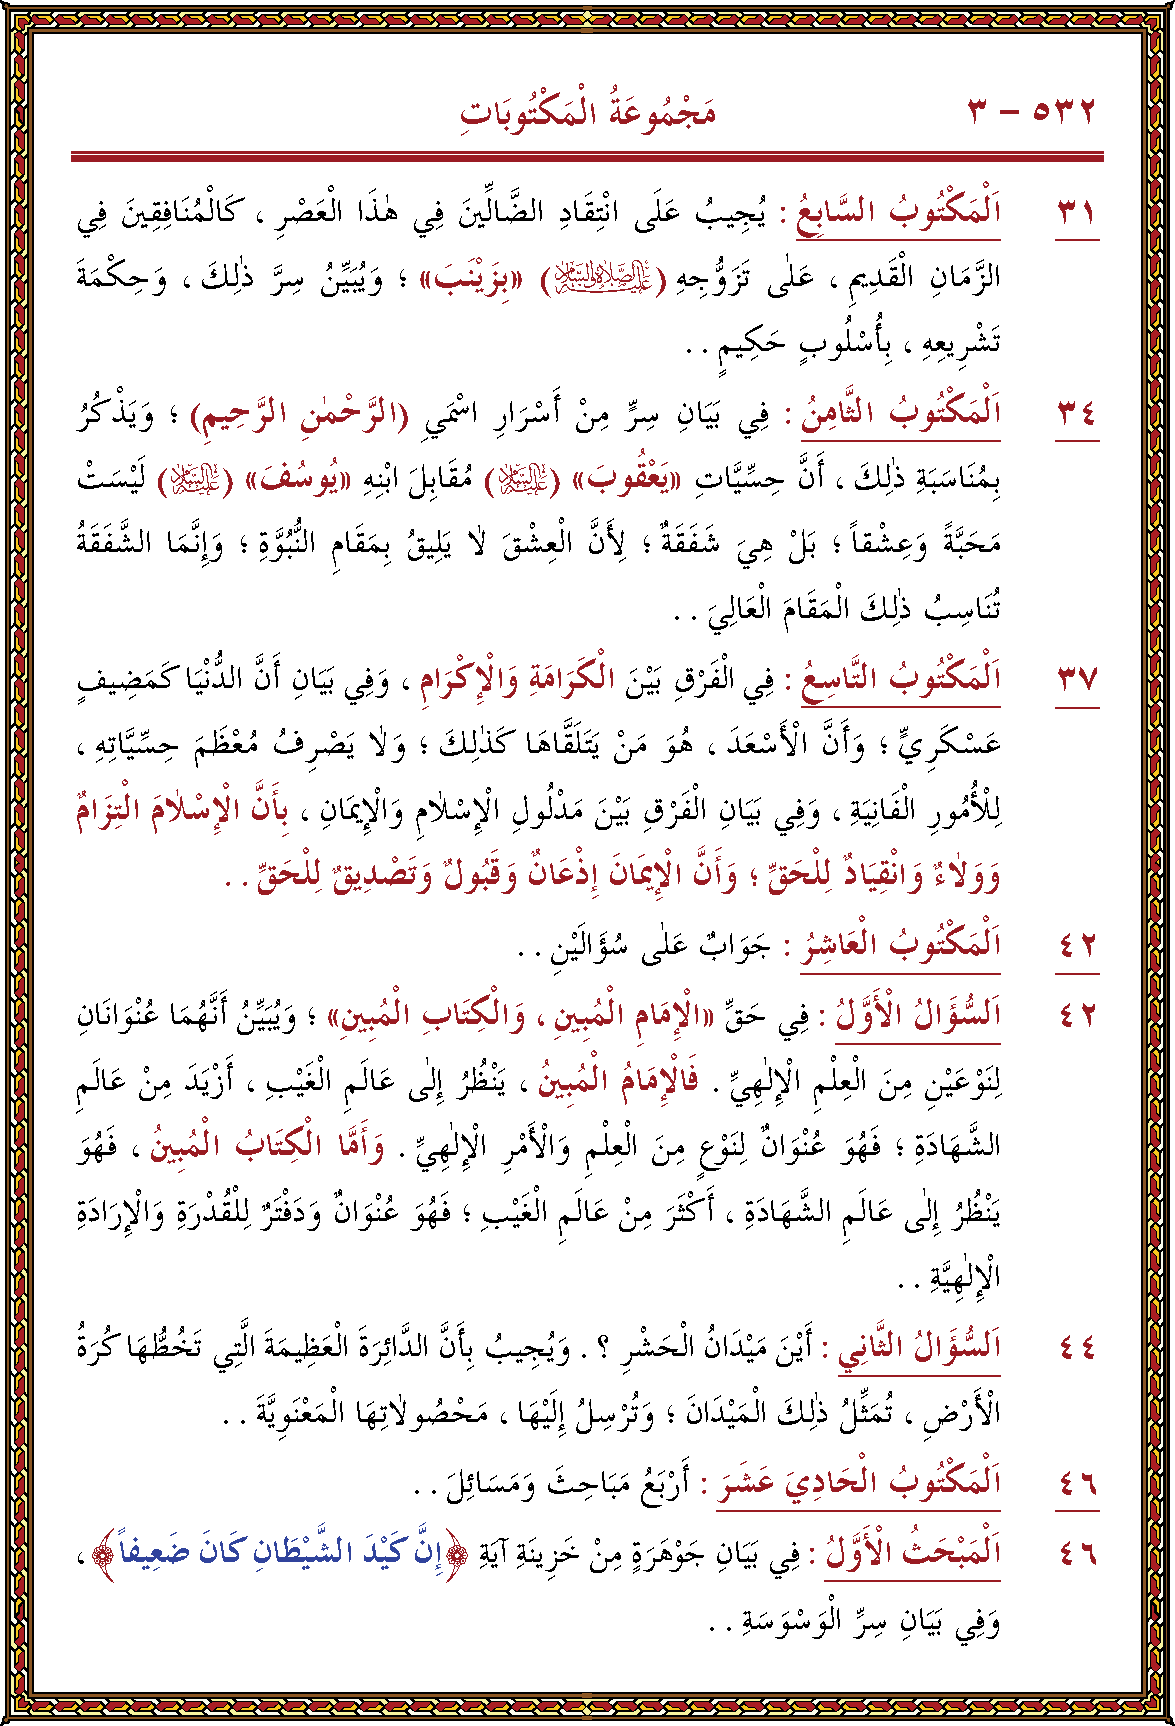 ٥٣٢ – ٣ مَجْمُوعَةُ الْمَكْتُوبَاتِ
٣١ اَلْمَكْتُوبُ السَّابِعُ : يُجِيبُ عَلَى انْتِقَادِ الضَّالِّينَ فِي هٰذَا الْعَصْرِ ، كَالْمُنَافِقِينَ فِي
الزَّمَانِ الْقَدِيمِ ، عَلٰى تَزَوُّجِهِ (عَلَيْهِ الصَّلَاةُ وَالسَّلَامُ) «بِزَيْنَبَ» ؛ وَيُبَيِّنُ سِرَّ ذٰلِكَ ، وَحِكْمَةَ
تَشْرِيعِهِ ، بِأُسْلُوبٍ حَكِيمٍ . .
٣٤ اَلْمَكْتُوبُ الثَّامِنُ : فِي بَيَانِ سِرٍّ مِنْ أَسْرَارِ اسْمَيِ (الرَّحْمٰنِ الرَّحِيمِ) ؛ وَيَذْكُرُ
بِمُنَاسَبَةِ ذٰلِكَ ، أَنَّ حِسِّيَّاتِ «يَعْقُوبَ» (عَلَيْهِ السَّلَامُ) مُقَابِلَ ابْنِهِ «يُوسُفَ» (عَلَيْهِ السَّلَامُ) لَيْسَتْ
مَحَبَّةً وَعِشْقاً ؛ بَلْ هِيَ شَفَقَةٌ ؛ لِأَنَّ الْعِشْقَ لاٰ يَلِيقُ بِمَقَامِ النُّبُوَّةِ ؛ وَإِنَّمَا الشَّفَقَةُ
تُنَاسِبُ ذٰلِكَ الْمَقَامَ الْعَالِيَ . .
٣٧ اَلْمَكْتُوبُ التَّاسِعُ : فِي الْفَرْقِ بَيْنَ الْكَرَامَةِ وَالْإِكْرَامِ ، وَفِي بَيَانِ أَنَّ الدُّنْيَا كَمَضِيفٍ
عَسْكَرِيٍّ ؛ وَأَنَّ الْأَسْعَدَ ، هُوَ مَنْ يَتَلَقَّاهَا كَذٰلِكَ ؛ وَلاٰ يَصْرِفُ مُعْظَمَ حِسِّيَّاتِهِ ،
لِلْأُمُورِ الْفَانِيَةِ ، وَفِي بَيَانِ الْفَرْقِ بَيْنَ مَدْلُولِ الْإِسْلاٰمِ وَالْإِيمَانِ ، بِأَنَّ الْإِسْلاٰمَ الْتِزَامٌ
وَوَلاٰءٌ وَانْقِيَادٌ لِلْحَقِّ ؛ وَأَنَّ الْإِيمَانَ إِذْعَانٌ وَقَبُولٌ وَتَصْدِيقٌ لِلْحَقِّ . .
٤٢ اَلْمَكْتُوبُ الْعَاشِرُ : جَوَابٌ عَلٰى سُؤَالَيْنِ . .
٤٢ اَلسُّؤَالُ الْأَوَّلُ : فِي حَقِّ «الْإِمَامِ الْمُبِينِ ، وَالْكِتَابِ الْمُبِينِ» ؛ وَيُبَيِّنُ أَنَّهُمَا عُنْوَانَانِ
لِنَوْعَيْنِ مِنَ الْعِلْمِ الْإِلٰهِيِّ . فَالْإِمَامُ الْمُبِينُ ، يَنْظُرُ إِلٰى عَالَمِ الْغَيْبِ ، أَزْيَدَ مِنْ عَالَمِ
الشَّهَادَةِ ؛ فَهُوَ عُنْوَانٌ لِنَوْعٍ مِنَ الْعِلْمِ وَالْأَمْرِ الْإِلٰهِيِّ . وَأَمَّا الْكِتَابُ الْمُبِينُ ، فَهُوَ
يَنْظُرُ إِلٰى عَالَمِ الشَّهَادَةِ ، أَكْثَرَ مِنْ عَالَمِ الْغَيْبِ ؛ فَهُوَ عُنْوَانٌ وَدَفْتَرٌ لِلْقُدْرَةِ وَالْإِرَادَةِ
الْإِلٰهِيَّةِ . .
٤٤ اَلسُّؤَالُ الثَّانِي : أَيْنَ مَيْدَانُ الْحَشْرِ ؟ . وَيُجِيبُ بِأَنَّ الدَّائِرَةَ الْعَظِيمَةَ الَّتِي تَخُطُّهَا كُرَةُ
الْأَرْضِ ، تُمَثِّلُ ذٰلِكَ الْمَيْدَانَ ؛ وَتُرْسِلُ إِلَيْهَا ، مَحْصُولاٰتِهَا الْمَعْنَوِيَّةَ . .
٤٦ اَلْمَكْتُوبُ الْحَادِيَ عَشَرَ : أَرْبَعُ مَبَاحِثَ وَمَسَائِلَ . .
٤٦ اَلْمَبْحَثُ الْأَوَّلُ : فِي بَيَانِ جَوْهَرَةٍ مِنْ خَزِينَةِ آيَةِ ﴿إِنَّ كَيْدَ الشَّيْطَانِ كَانَ ضَعِيفاً﴾ ،
وَفِي بَيَانِ سِرِّ الْوَسْوَسَةِ . .